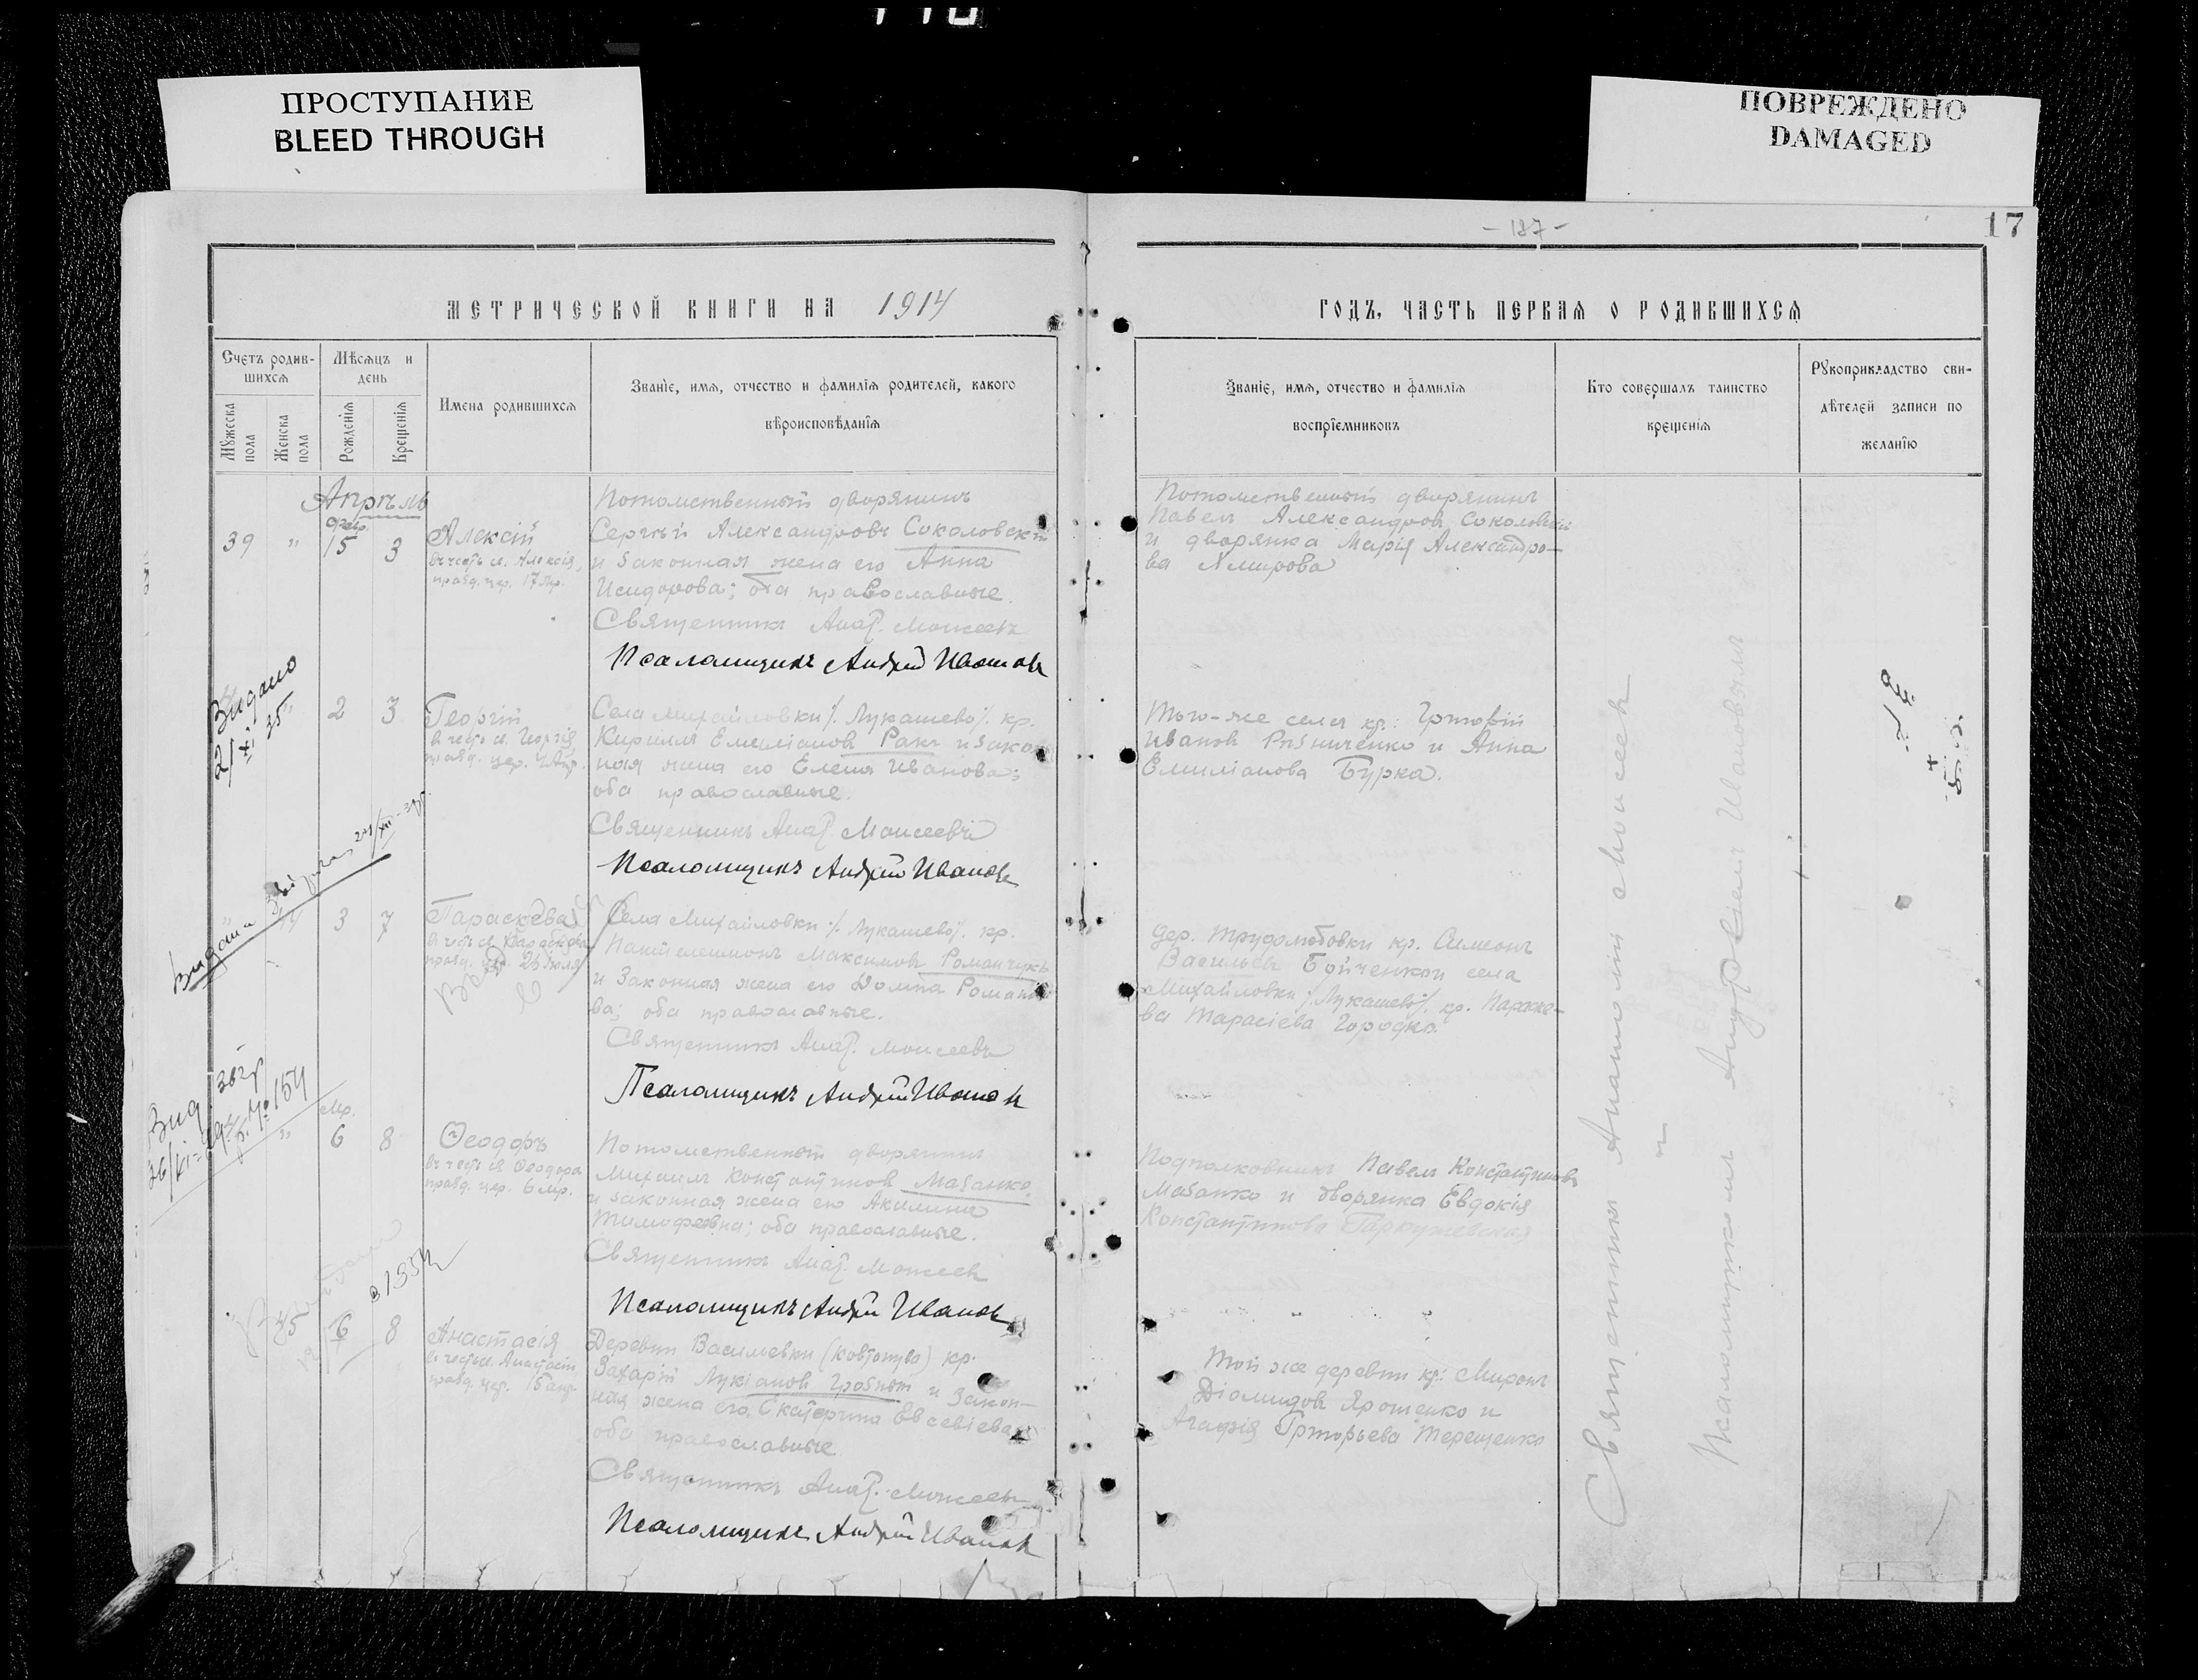 ПРОСТУПАНИЕ
BLEED THROUGH
ПОВРЕЖДЕНО
DAMAGED
- 187 -
17
МЕТРИЧЕСКОЙ КНИГИ НА 1914
ГОДЪ, ЧАСТЬ ПЕРВАЯ О РОДИВШИХСЯ
Счетъ родив-
шихся
Мѣсяцъ и
день
Мужеска
пола
Женска
пола
Рожденія
Крещенія
Имена родившихся
Званіе, имя, отчество и фамилія родителей, какого
вѣроисповѣданія
Званіе, имя, отчество и фамилія
воспріемниковъ
Кто совершалъ таинство
крещенія
Рукоприкладство сви-
дѣтелей записи по
желанію
Апрѣль
39 " 15 3
Алексій
въ честь св. Алексія,
празд. цер. 17 Мр.
Потомственный дворянинъ
Сергѣй Александровъ Соколовскій
и законная жена его Анна
Исидорова; оба православные.
Священникъ Анат. Моисеевъ
Псаломщикъ Андрей Ивановъ
Потомственный дворянинъ
Павелъ Александровъ Соколовскій
и дворянка Марія Александро-
ва
Видано
2/XI 35
2 3
Георгій
въ честь св. Георгія,
празд. цер.
Села Михайловки /. Лукашево /. кр.
Кириллъ Емеліановъ Ракъ и закон
ная жена его Елена Иванова;
оба православные.
Священникъ Анат. Моисеевъ
Псаломщикъ Андрей Ивановъ
Того-же села кр.: Григорій
Ивановъ Рѣзниченко и Анна
Емиліанова Бурка.
Видана
" 44 3 7
Параскева
въ честь св. Параскевы
празд. цер. 26 Іюля
Села Михайловки /. Лукашево /. кр.
Пантелеимонъ Максимовъ Романчукъ
и законная жена его Домна Романо
ва; оба православные.
Священникъ Анат. Моисеевъ
Псаломщикъ Андрей Ивановъ
Дер. Трудолюбовки кр. Симеонъ
Васильевъ Бойченко и села
Михайловки /. Лукашево /. кр. Параске-
ва Тарасіева Городко.
Вид.
154
Мр.
" 6 8
Ѳеодоръ
въ честь св. Ѳеодора
празд. цер. 6 Мр.
Потомственный дворянинъ
Михаилъ Константиновъ Мазанко
и законная жена его Акилина
Тимофеевна; оба православные.
Священникъ Анат. Моисеевъ
Псаломщикъ Андрей Ивановъ
Подполковникъ Павелъ Константиновъ
Мазанко и дворянка Евдокія
Константинова
в 1934
45 6 8
Анастасія
въ честь св. Анастасіи,
празд. цер. 15 апр.
Деревни Васильевки (Ковтунова) кр.
Захарій Лукіановъ Грозный и закон-
ная жена его, Екатерина Евсевіева;
оба православные
Священникъ Анат. Моисеевъ
Псаломщикъ Андрей Ивановъ
Той же деревни кр: Миронъ
Діомидовъ Ярошенко и
Агафія Григорьева Терещенко
Священникъ Анатолій Моисеевъ
и
Псаломщикомъ Андреемъ Ивановымъ